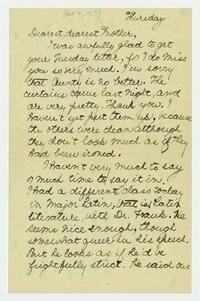 Thursday
Dearest, dearest Mother,
I was awfully glad to get
your Tuesday letter, for I do miss
you so very much. I'm sorry
that Aunti is no better. The
curtains came last night, and
are very pretty. Thank you. I
haven't yet put them up, because
the others were clean although
they don't look much as if they
had been ironed.
I haven't very much to say
or much time to say it in.
I had a different class today
in Major Latin, that is Latin
Literature, with Dr. Frank. He
seems nice enough, though
somewhat queer in his speech.
But he looks as if he'd be
frightfully strict. He said our